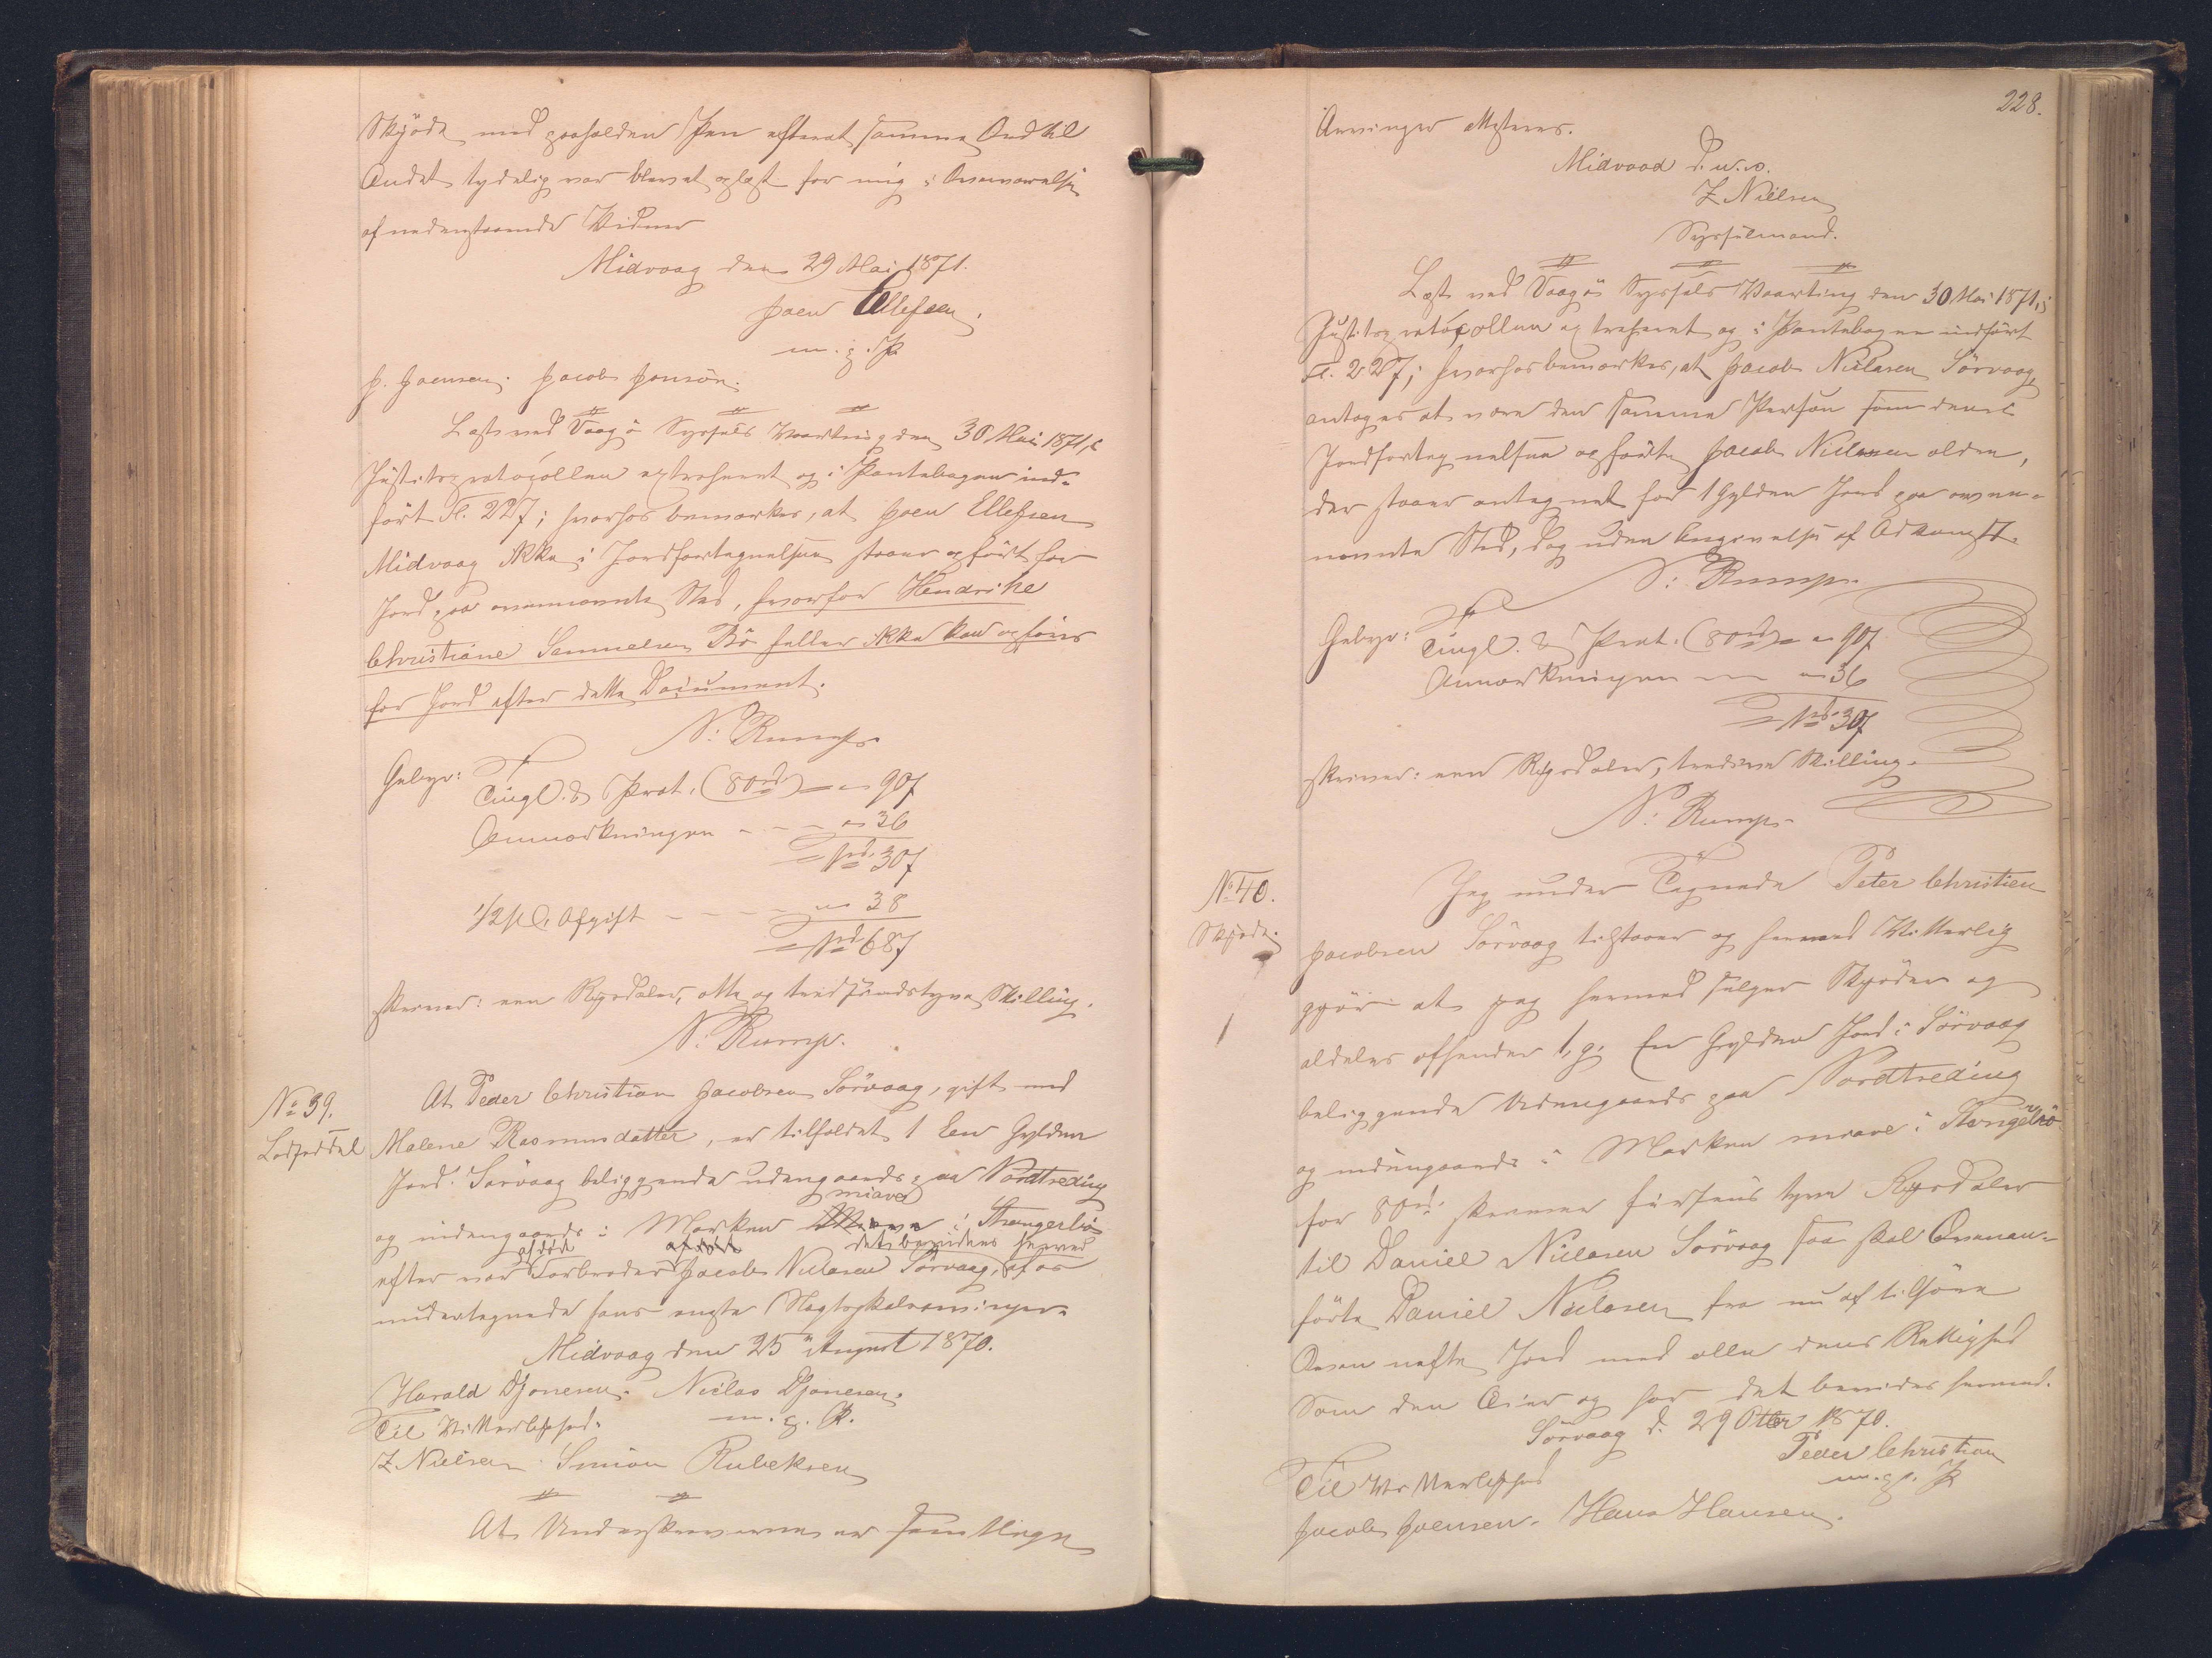 Skjøde med paaholden Pen efterat samme Ord til
Andet tydelig var blevet oplæst for mig i Overværelse
af nedenstaaende Vidner
Midvaag den 29 Mai 1871.
Joen Ellefsen.
m. p. P.
J. Joensen. Jacob Jonsön.
Læst ved Vaagö Syssels Vaarting den 30 Mai 1871, i
Justitsprotocollen extraheret og i Pantebogen ind-
ført Fl. 227; hvorhos bemærkes, at Joen Ellefsen
Midvaag ikke i Jordfortegnelsen staaer opført for
Jord paa ovennævnte Sted, hvorfor Hendrike
Christiane Samuelsen Bö heller ikke kan opføres
for Jord efter dette Document.
N: Rump.
Gebyr: Tingl. & Prot. (80rd) — " 90 f
Anmærkningen - - - " 36
1rd 30 f
1/2 pCt Afgift - - - - " 38
1rd 68 f
skriver: een Rigsdaler, otte og tredsindstyve Skilling.
N: Rump.
No 39.
Lodseddel
At Peder Christian Jacobsen Sörvaag, gift med
Malene Rasmusdatter, er tilfaldet 1 Een Gylden
Jord i Sörvaag beliggende udengaards paa Nordtreding
miave
og indengaards i Marken i Stvangerbö
afdøde det bevidnes herved
efter vor Farbroder Jacob Nielasen Sörvaag, af os
undertegnede hans ægte Slegtskabsarvinger.
Midvaag den 25 August 1870.
Harald Djonesen. Nielas Djonesen.
Til Vitterlighed. m. p. P.
Z. Nielsen. Simon Rubeksen
At Underskriverne er samtlige
228.
Arvinger attesteres.
Midvaag d. u. s.
Z Nielsen
Sysselmand.
Læst ved Vaagö Syssels Vaarting den 30 Mai 1871, i
Justitsprotocollen extraheret og i Pantebogen indført
Fl. 227; hvorhos bemærkes, at Jacob Nielasen Sörvaag,
antages at være den samme Person som den i
Jordfortegnelsen opførte Jacob Nielasen ældre,
der staaer antegnet for 1 Gylden Jord paa ovenn-
nævnte Sted, dog uden Angivelse af Adkomst.
N: Rump.
Gebyr: Tingl. & Prot. (80rd) — " 90 f
Anmærkningen — " 36
1rd 30 f
skriver: een Rigsdaler, tredive Skilling.
N: Rump.
No 40.
Skjøde.
Jeg under Tegnede Peter Christien
Jacobsen Sörvaag tilstaaer og hermed Vitterlig
gjör at jeg hermed sælger Skjöder og
aldeles afhender 1, g. En Gylden Jord i Sörvaag
beliggende Udengaards paa Nordtreding
og indengaards i Marken miave i Stvngerbö
for 80rd skriver fiirsinds tyve Rigsdaler
til Daniel Nielasen Sörvaag saa skal Ovenan-
førte Daniel Nielasen fra nu af tilhöre
Oven nefte Jord med alle dens Rettighed
Som den Eier og har det bevidnes hermed.
Sörvaag d. 29 Otbr 1870.
Peder Christian
m. p. P.
Til Vitterlighed
Jacob Joensen. Hans Hansen.